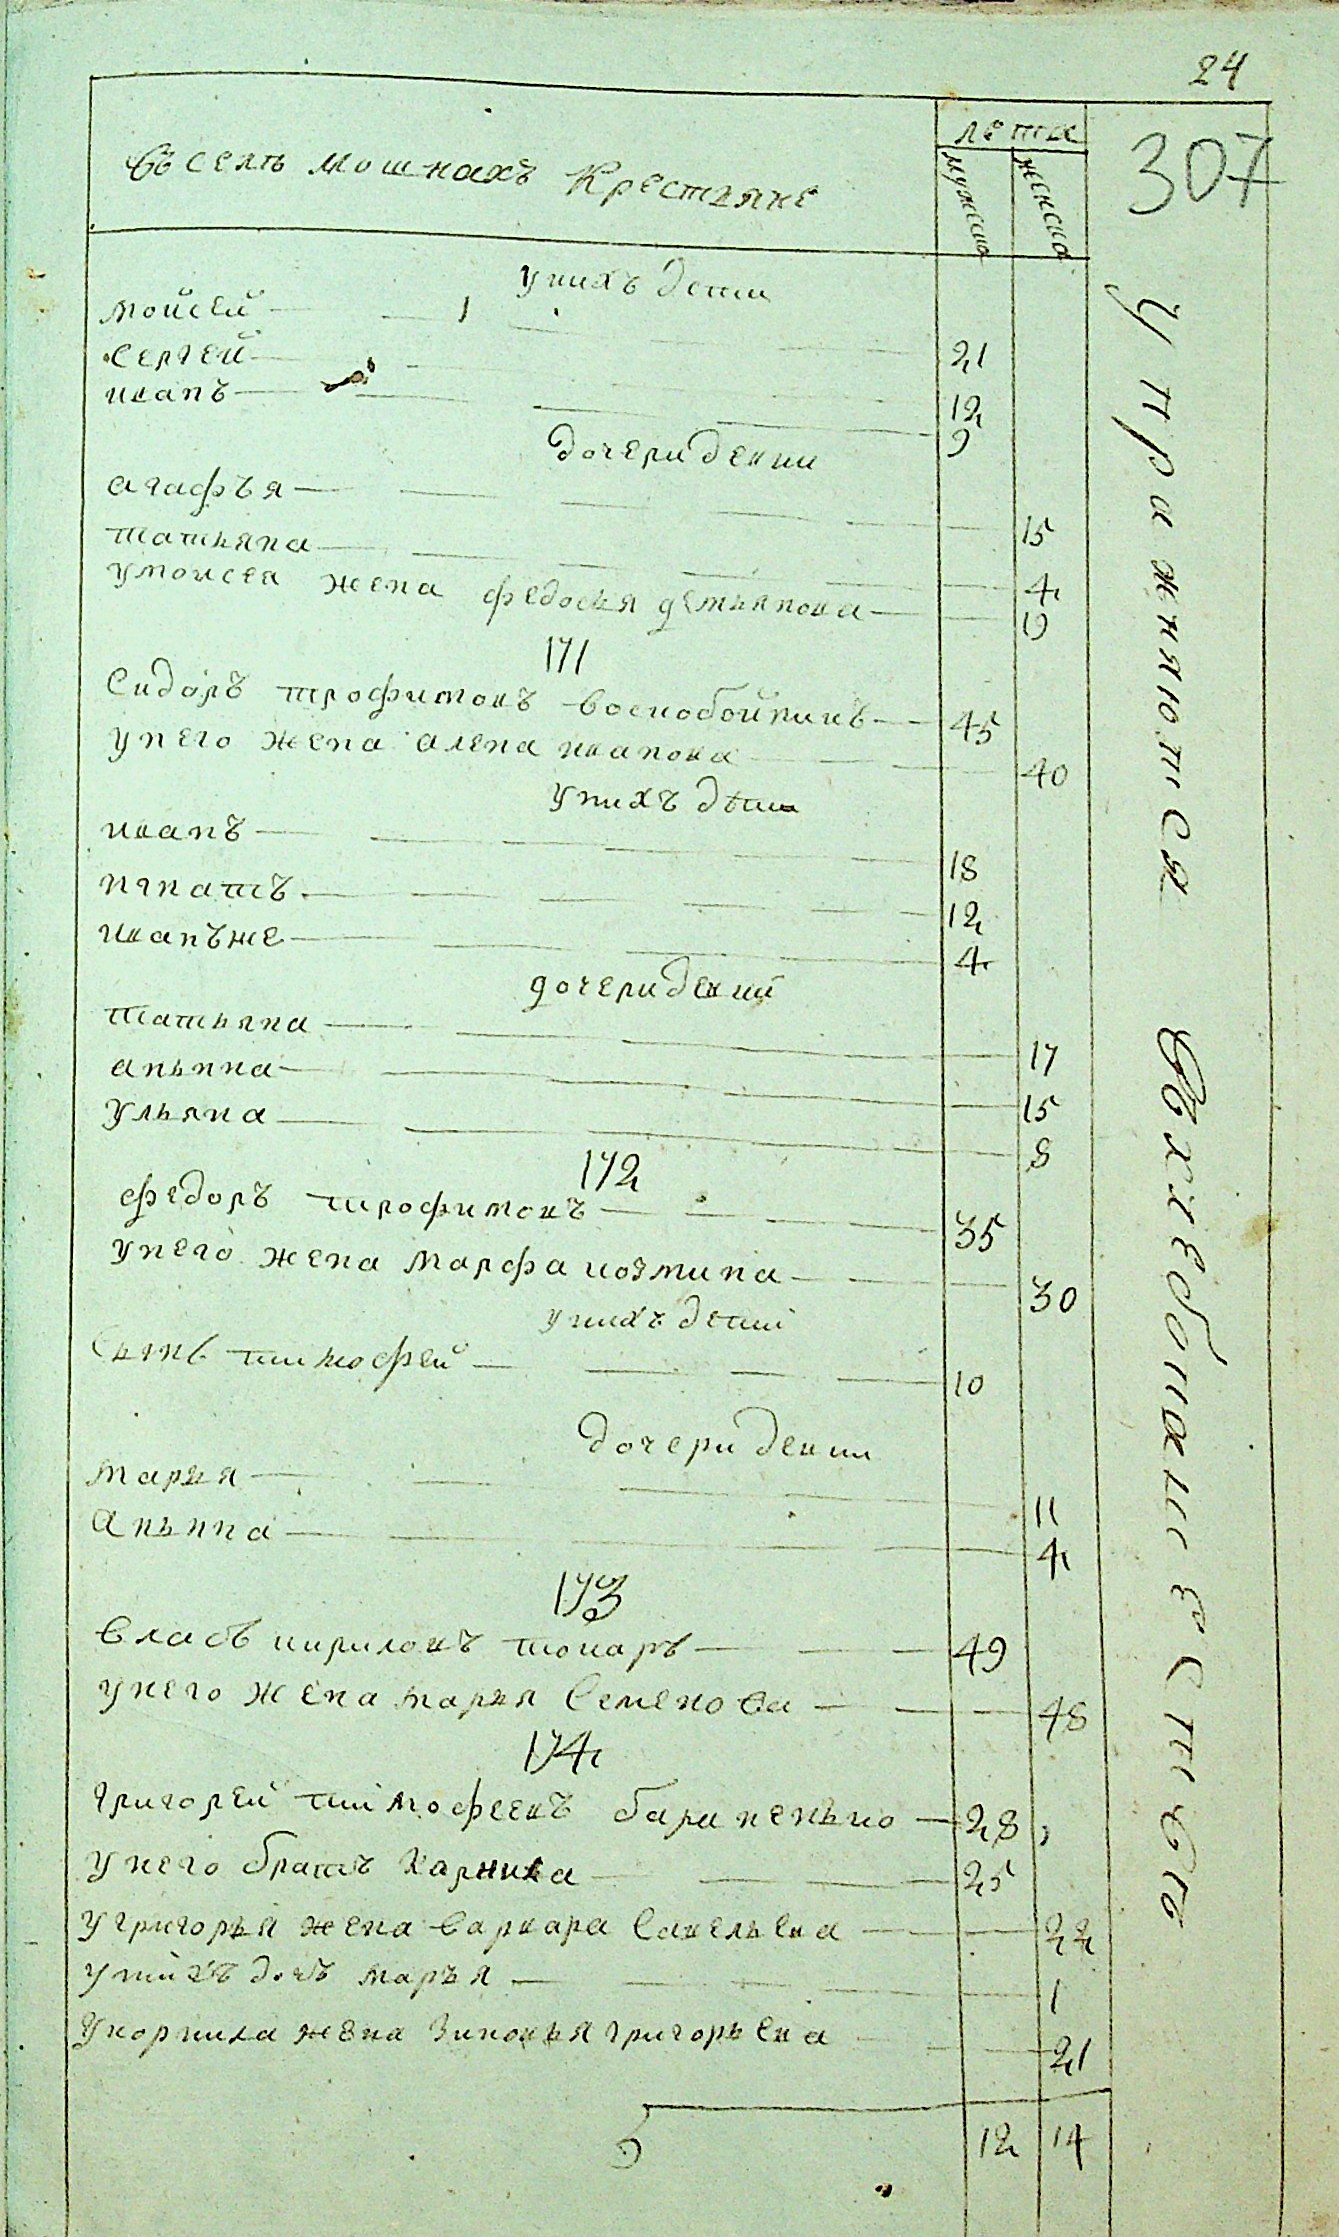 24
307
въ селѣ мошнахъ Крестьяне
лета
мужеска
женска
у нихъ дети
моисей 21
сергей 12
иванъ 9
дочери девки
агафъя 15
татьяна 4
у моисея жена федосья демьянова 19
171
Сидоръ трофимовъ воскобойникъ 45
у него жена алена иванова 40
у нихъ дѣти
иванъ 18
игнатъ 12
иванъ же 4
дочери девки
татьяна 17
анънна 15
ульяна 8
172
федоръ трофимовъ 35
у него жена марфа козмина 30
у нихъ дети
Сынъ тимофей 10
дочери девки
марья 11
Анънна 4
173
власъ кириловъ токарь 49
у него жена марья Семенова 48
174
григорей тимофеевъ 28
у него братъ карнила 25
у григорья жена варвара Савельева 22
у нихъ дочь маръя 1
у корнила жена зиновья григорьева 21
5 12 14
упражняются
въ хлебопашестве